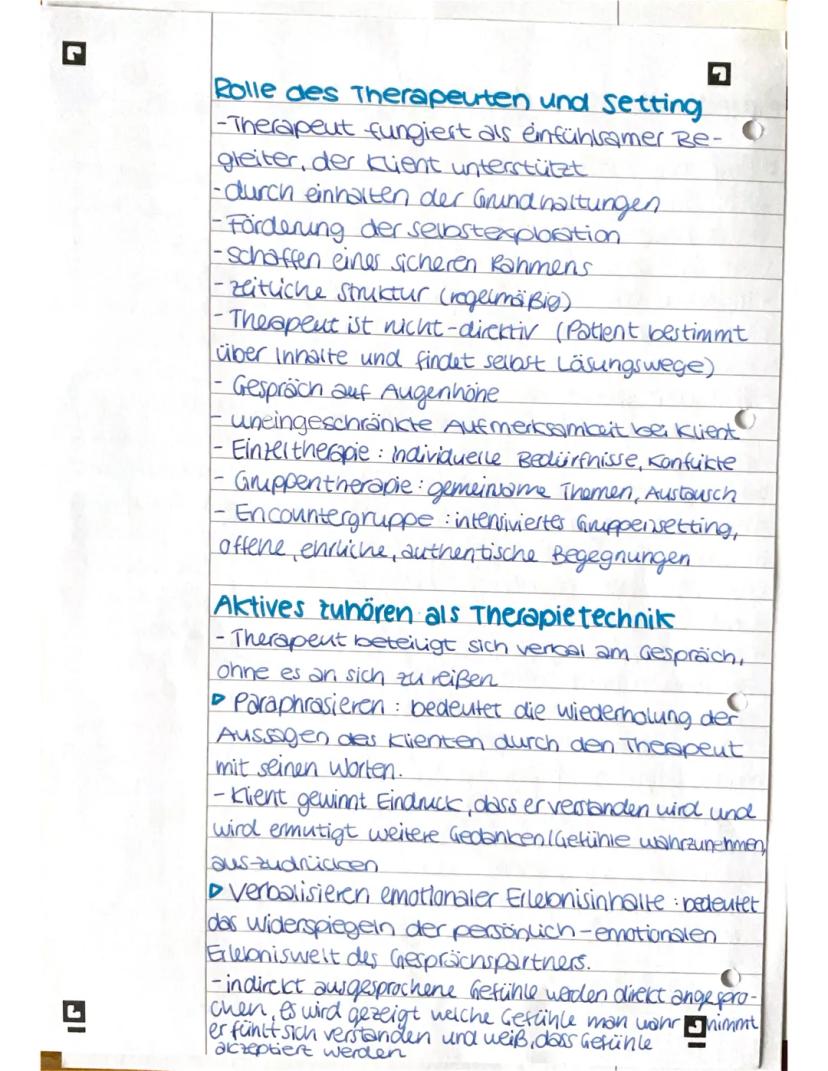 Rolle des Therapeuten und Setting
-Therapeut fungiert als einfühlsamer Be-
gleiter, der Klient unterstützt
-durch einhalten der Grundhaltungen
-Förderung der selbstexploration
-schaffen eines sicheren Rahmens
-zeitliche Struktur (regelmäßig)
-Therapeut ist nicht-direktiv (Patient bestimmt
über Inhalte und findet selbst Läsungswege)
- Gespräch auf Augenhöhe
- uneingeschränkte Aufmerksamkeit bei Klient
- Einzeltherapie : individuelle Bedürfnisse, Konflikte
- Gruppentherapie : gemeinsame Themen, Austausch
- Encountergruppe : intensiviertes Gruppensetting,
offene, ehrliche, authentische Begegnungen
Aktives zuhören als Therapietechnik
- Therapeut beteiligt sich verbal am Gespräch,
ohne es an sich zu reißen
▷ Paraphrasieren : bedeutet die wiederholung der
Aussagen des Klienten durch den Therapeut
mit seinen Worten.
- Klient gewinnt Eindruck, dass er verstanden wird und
wird ermutigt weitere Gedanken/Gefühle wahrzunehmen,
auszudrücken
▷ Verbalisieren emotionaler Erlebnisinhalte : bedeutet
das Widerspiegeln der persönlich-emotionalen
Erlebniswelt des Gesprächspartners.
-indirekt ausgesprochene Gefühle werden direkt angespro-
chen, es wird gezeigt welche Gefühle man wahrnimmt
er fühlt sich verstanden und weiß, dass Gefühle
akzeptiert werden